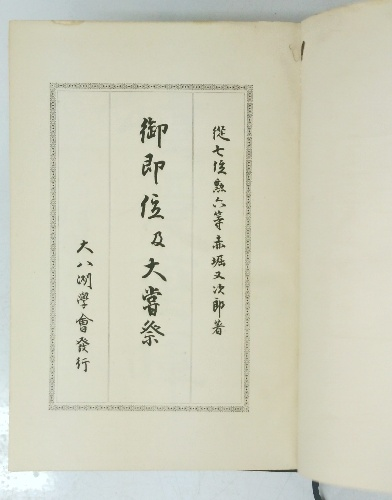 從七位勲六等赤堀又次郎著
御即位及大嘗祭
大八洲學會發行